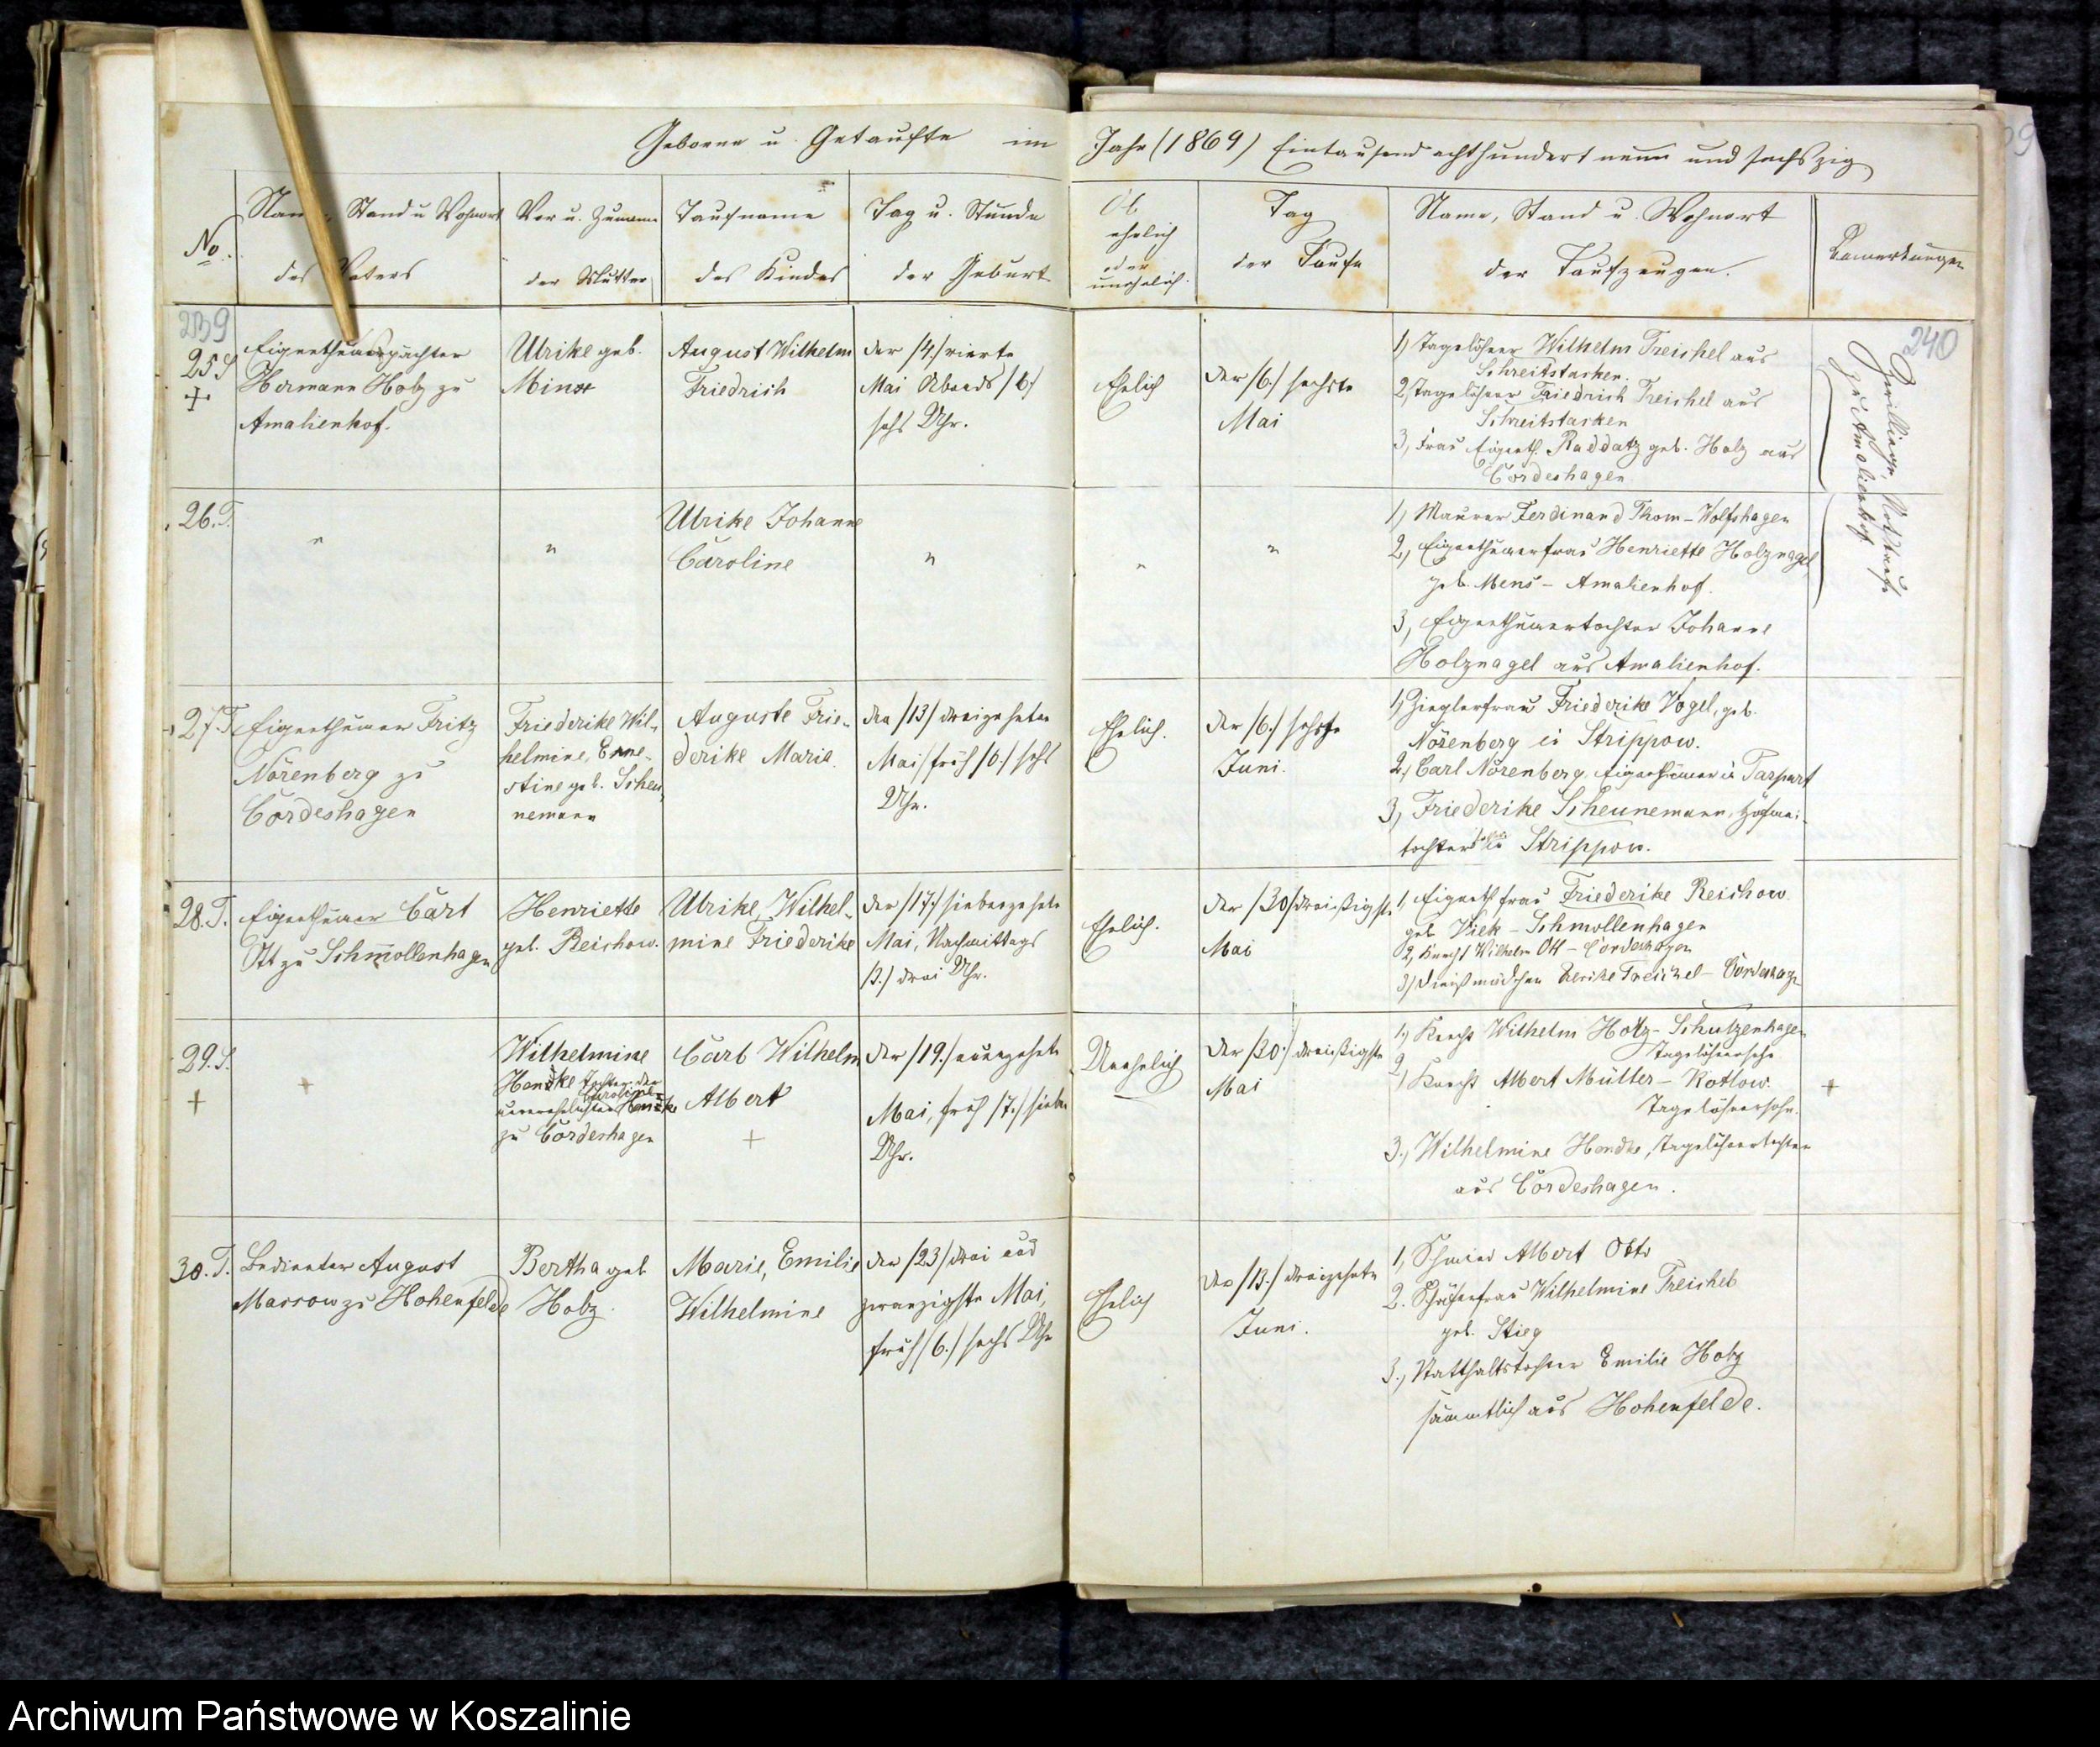 Geborne u. Getaufte im Jahr (1869) Eintausend achthundert neun und sechszig
No.
Stand u Wohnort
des Vaters
Vor u. Zuname
der Mutter
Taufname
des Kindes
Tag u. Stunde
der Geburt
Ob
ehelich
oder
unehelich.
Tag
der Taufe
Name, Stand u. Wohnort
der Taufzeugen.
Bemerkungen
239
240
25 S
+
Eigenthumspächter
Hermann Holz zu
Amalienhof.
Ulrike geb.
August Wilhelm
Friedrich
der /4./ vierte
Mai Abends /6./
sechs Uhr.
Ehelich
der /6./ sechste
Mai
1, Tagelöhner Wilhelm Treichel aus
Schreitstacken.
2, Tagelöhner Friedrich Treichel aus
Schreitstacken
3, Frau Eigenth. Raddatz geb. Holz aus
Cordeshagen
Zwillinge, Nottaufe
zu Amalienhof
26. T.
"
"
Ulrike Johanne
Caroline
"
"
"
1, Maurer Ferdinand Thom – Wolfshagen
2, Eigenthümerfrau Henriette Holznagel
geb. Mens – Amalienhof.
3, Eigenthümertochter Johanne
Holznagel aus Amalienhof.
27. T.
Eigenthümer Fritz
Nörenberg zu
Cordeshagen
Friederike Wil-
helmine, Erne-
stine geb. Scheu-
nemann
Auguste Frie-
derike Marie.
den /13/ dreizehnten
Mai /früh /6./ sechs
Uhr.
Ehelich.
der /6./ sechste
Juni.
1, Zieglerfrau Friederike Vogel, geb.
Nörenberg in Strippow.
2, Carl Nörenberg, Eigenthümer in
3, Friederike Scheunemann,
tochter Strippow.
28. T.
Eigenthümer Carl
Ott zu Schmollenhagen
Henriette
geb. Reichow.
Ulrike, Wilhel-
mine Friederike
der /17./ siebenzehnte
Mai, Nachmittags
/3./ drei Uhr.
Ehelich.
der /30/ dreißigste
Mai
1, Eigenth frau Friederike Reichow
geb. Viek – Schmollenhagen
2, Knecht Wilhelm Ott – Cordeshagen
3, Dienstmädchen Ulrike Treichel – Cordeshagen
29. S.
+
+
Wilhelmine
Henske Tochter der
Caroline
unverehelichten Henske
zu Cordeshagen
Carl Wilhelm
Albert
+
der /19./ neunzehnte
Mai, früh /7./ sieben
Uhr.
Unehelich
der /30./ dreißigste
Mai
1, Knecht Wilhelm Holz – Schulzenhagen
Tagelöhnersohn
2, Knecht Albert Müller – Kotlow.
Tagelöhnersohn.
3., Wilhelmine Henske, Tagelöhnertochter
aus Cordeshagen.
+
30. T.
Bedienter August
Massow zu Hohenfelde
Bertha geb
Holz.
Marie, Emilie
Wilhelmine
der /23/ drei und
zwanzigste Mai,
früh /6./ sechs Uhr
Ehelich
der /13./ dreizehnte
Juni.
1, Schmied Albert Otto
2. Schäferfrau Wilhelmine Treichel
geb. Stieg
3., Statthaltstochter Emilie Holz
sämmtlich aus Hohenfelde.
Archiwum Państwowe w Koszalinie